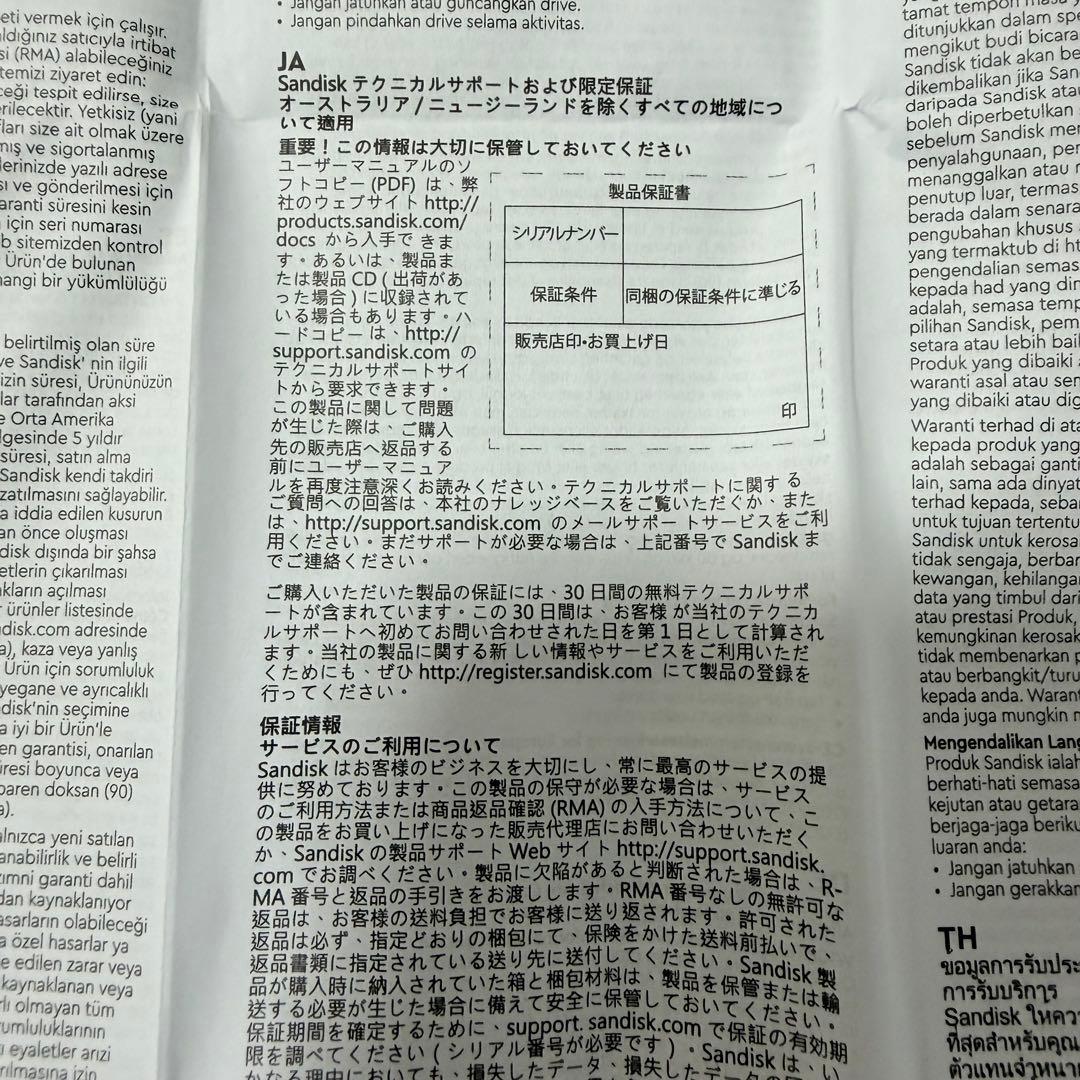 eti vermek için çalışır.
aldığınız satıcıyla irtibat
si (RMA) alabileceğiniz
temizi ziyaret edin:
ceği tespit edilirse, size
erilecektir. Yetkisiz (yani
fları size ait olmak üzere
mış ve sigortalanmış
lerinizde yazılı adrese
sı ve gönderilmesi için
aranti süresini kesin
için seri numarası
b sitemizden kontrol
Ürün'de bulunan
hangi bir yükümlülüğü
belirtilmiş olan süre
ve Sandisk' nin ilgili
izin süresi, Ürününüzün
lar tarafından aksi
e Orta Amerika
lgesinde 5 yıldır
süresi, satın alma
Sandisk kendi takdiri
zatılmasını sağlayabilir.
a iddia edilen kusurun
an önce oluşması
disk dışında bir şahsa
etlerin çıkarılması
akların açılması
r ürünler listesinde
ndisk.com adresinde
a), kaza veya yanlış
Ürün için sorumluluk
yegane ve ayrıcalıklı
disk'nin seçimine
a iyi bir Ürün'le
en garantisi, onarılan
üresi boyunca veya
paren doksan (90)
a).
alnızca yeni satılan
anabilirlik ve belirli
zımni garanti dahil
dan kaynaklanıyor
asarların olabileceği
a özel hasarlar ya
e edilen zarar veya
kaynaklanan veya
rlı olmayan tüm
rumluluklarının
ı eyaletler arızi
rılmasına izin
• Jangan jatuhkan atau guncangkan drive.
• Jangan pindahkan drive selama aktivitas.
JA
Sandisk テクニカルサポートおよび限定保証
オーストラリア / ニュージーランドを除くすべての地域につ
いて適用
重要！この情報は大切に保管しておいてください
ユーザーマニュアルのソ
フトコピー (PDF) は、弊
社のウェブサイト http://
products.sandisk.com/
docs から入手で きま
す。あるいは、製品ま
たは製品 CD ( 出荷があ
った場合 ) に収録されて
いる場合もあります。ハ
ードコピー は、http://
support.sandisk.com の
テクニカルサポートサイ
トから要求できます。
この製品に関して問題
が生じた際は、ご購入
先の販売店へ返品する
前にユーザーマニュア
ルを再度注意深くお読みください。テクニカルサポートに関する
ご質問への回答は、本社のナレッジベースをご覧いただぐか、また
は、http://support.sandisk.com のメールサポートサービスをご利
用ください。まだサポートが必要な場合は、上記番号で Sandisk ま
でご連絡ください。
製品保証書
シリアルナンバー
保証条件 同梱の保証条件に準じる
販売店印・お買上げ日
印
ご購入いただいた製品の保証には、30 日間の無料テクニカルサポ
ートが含まれています。この 30 日間は、お客様 が当社のテクニカ
ルサポートへ初めてお問い合わせされた日を第 1 日として計算され
ます。当社の製品に関する新 しい情報やサービスをご利用いただ
くためにも、ぜひ http://register.sandisk.com にて製品の登録を
行ってください。
保証情報
サービスのご利用について
Sandisk はお客様のビジネスを大切にし、常に最高のサービスの提
供に努めております。この製品の保守が必要な場合は、サービス
のご利用方法または商品返品確認 (RMA) の入手方法について、こ
の製品をお買い上げになった販売代理店にお問い合わせいただく
か、Sandisk の製品サポート Web サイト http://support.sandisk.
com でお調べください。製品に欠陥があると判断された場合は、R-
MA 番号と返品の手引きをお渡しします。RMA 番号なしの無許可な
返品は、お客様の送料負担でお客様に送り返されます。許可された
返品は必ず、指定どおりの梱包にて、保険をかけた送料前払いで、
返品書類に指定されている送り先に送付してください。Sandisk 製
品が購入時に納入されていた箱と梱包材料は、製品を保管または輸
送する必要が生じた場合に備えて安全に保管しておいてください。
保証期間を確定するために、support. sandisk.com で保証の有効期
限を調べてください ( シリアル番号が必要です )。Sandisk は、い
かなる理由においても、損失したデータ、損失したデータの
tamat tempoh masa
ditunjukkan dalam spe
mengikut budi bicara
Sandisk tidak akan be
dikembalikan jika San
daripada Sandisk atau
boleh diperbetulkan
sebelum Sandisk men
penyalahgunaan, per
menanggalkan atau
penutup luar, termas
berada dalam senara
pengubahan khusus
yang termaktub di ht
pengendalian semas
kepada had yang din
adalah, semasa temp
pilihan Sandisk, pem
setara atau lebih baik
Produk yang dibaiki
waranti asal atau sem
yang dibaiki atau dig
Waranti terhad di ata
kepada produk yang
adalah sebagai ganti
lain, sama ada dinyat
terhad kepada, sebar
untuk tujuan tertentu
Sandisk untuk kerosa
tidak sengaja, berban
kewangan, kehilangan
data yang timbul dari
atau prestasi Produk,
kemungkinan kerosak
tidak membenarkan p
atau berbangkit/turu
kepada anda. Warant
anda juga mungkin m
Mengendalikan Lang
Produk Sandisk ialah
berhati-hati semasa
kejutan atau getaran
berjaga-jaga beriku
luaran anda:
• Jangan jatuhkan
• Jangan gerakkan
TH
ขอมูลการรับประ
การรับบริการ
Sandisk ใหควา
ที่สุดสำหรับคุณ
ตัวแทนจำหนา